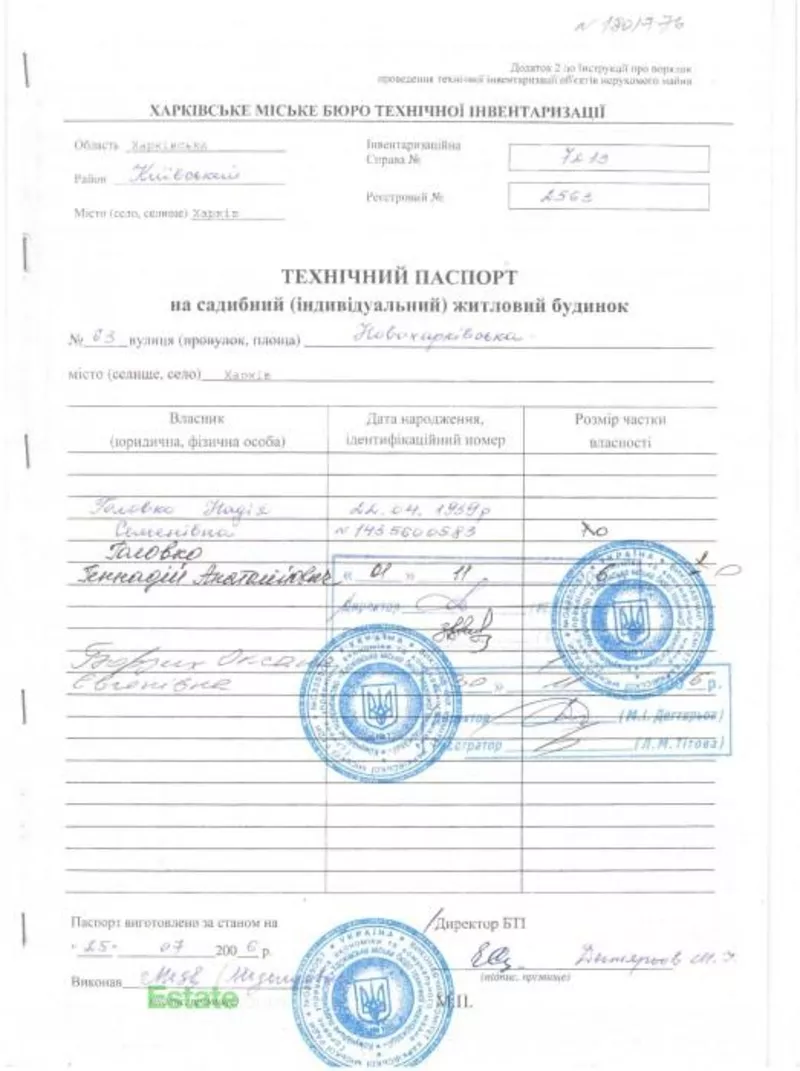 N 1801776
Додаток 2 до Інструкції про порядок
проведення технічної інвентаризації об'єктів нерухомого майна
ХАРКІВСЬКЕ МІСЬКЕ БЮРО ТЕХНІЧНОЇ ІНВЕНТАРИЗАЦІЇ
Область Харківська
Інвентаризаційна
Справа № 7213
Район Київський
Реєстровий № 2563
Місто (село, селище) Харків
ТЕХНІЧНИЙ ПАСПОРТ
на садибний (індивідуальний) житловий будинок
№ 63 вулиця (провулок, площа) Новохарківська
місто (селище, село) Харків
Власник Дата народження, Розмір частки
(юридична, фізична особа) ідентифікаційний номер власності
Головко Надія 22.04.1939р
Семенівна N 1435600583
Головко
Геннадій Анатолійович « 01 » 11
Директор
Оксана
Євгенівна 30 » 11 р.
Директор (М.І. Дегтярьов)
(Л.М.Тітова)
Паспорт виготовлено за станом на Директор БТІ
"25" 07 2006 р.
Дегтярьов М.І.
(підпис, прізвище)
Виконав
Estate М.П.
УКРАЇНА